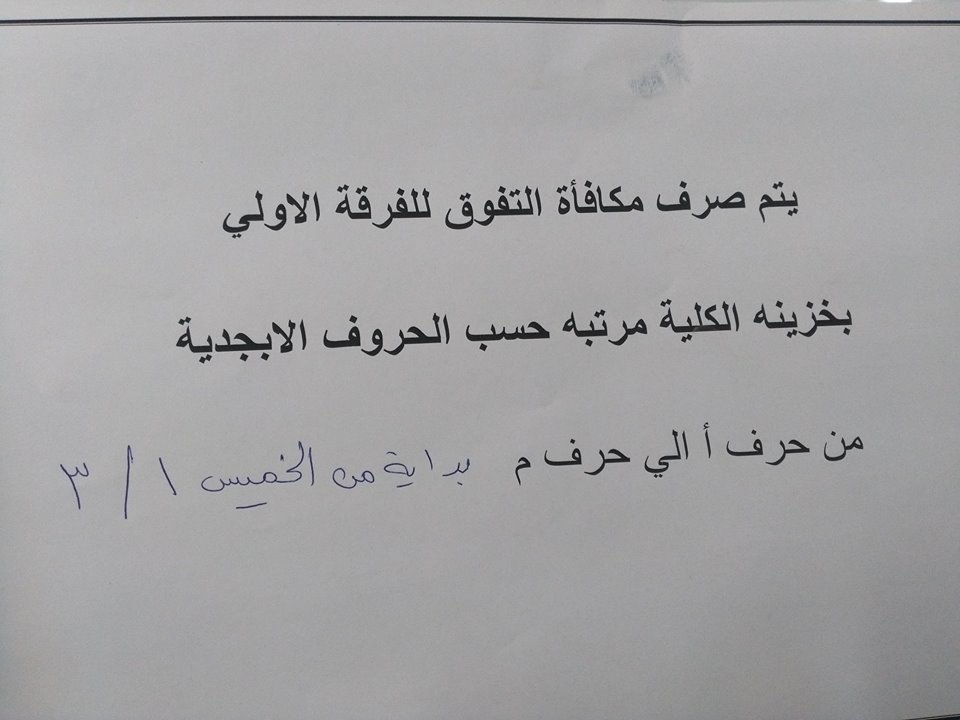 يتم صرف مكافأة التفوق للفرقة الاولي
بخزينه الكلية مرتبه حسب الحروف الابجدية
من حرف أ الي حرف م بداية من الخميس ١ / ٣